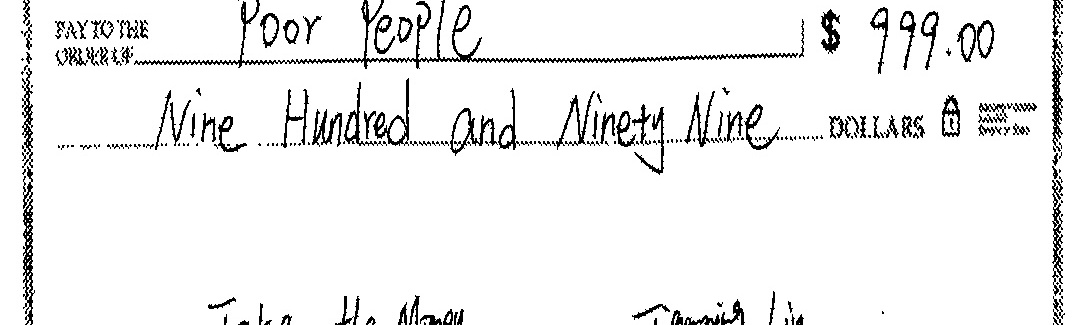 PAY TO THE ORDER OF Poor People $ 999.00
Nine Hundred and Ninety Nine DOLLARS
Take the Money